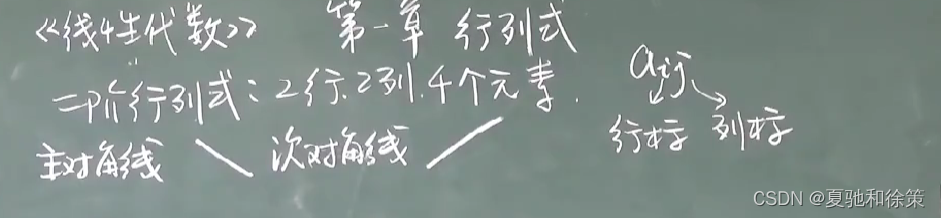 《线性代数》 第一章 行列式
二阶行列式：2行、2列.4个元素.
aij
行标 列标
主对角线 次对角线
CSDN @夏驰和徐策